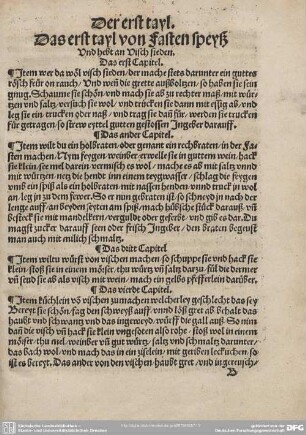 Der erst tayl.
Das erst tayl von Fasten speyß
Vnd hebt an Visch sieden.
Das erst Capitel.
¶ Item wer da wöl visch sieden/ der mache stets darunter ein guttes
rösch feür on rauch/ Vnd wen die grette außboltzen/ so haben sie sein
gnug. Schaume sie schön/ vnd mach sie ab/ zu rechter maß/ mit wür-
tzen vnd saltz/ versuch sie wol/ vnd trücken sie dann mit essig ab/ vnd
leg sie ein/ trucken oder naß/ vnd trag sie dañ für/ werden sie trucken
für getragen/ so strew eyttel gutten gestossen Ingeber darauff.
¶ Das ander Capitel.
¶ Item wilt du ein holbraten/ oder genant ein rechbraten/ in der Fa-
sten machen/ Nym feygen/ weinber/ erwelle sie in guttem wein/ hack
sie klein/ seine mandel darein/ vermisch es wol/ mach es ab mit saltz vnd
mit würtzen/ netz die hendt inn einem teygwasser/ schlag die feygen
vmb ein spiß als ein holbraten mit nassen henden/ vnnd truck in wol
an/ leg in zu dem fewer. So er nun gebraten ist/ so schneyd in nach der
lenge auff/ an beyden seyten am spiß/ mach hübsche stück darauß/ vñ
besteck sie mit mandelkern/ vergüldt oder geferbt/ vnd gib es dar. Du
magst zucker darauff seen oder frisch Ingeber/ den braten begeust
man auch mit eytlich schmaltz.
¶ Das dritt Capitel
¶ Item wiltu würst von vischen machen/ so schuppe sie vnd hack sie
klein/ stoß sie in einem mörser/ thu würtz vñ saltz darzu/ füll die dermer
vñ seud sie ab als visch mit wein/ mach ein gelbs pfefferlein darüber.
¶ Das vierde Capitel.
¶ Item küchlein võ vischen zumachen welcherley geschlecht das sey
Bereyt sie schön/ fag den schweyß auff/ vnnd löß gret ab/ behalt das
haubt vnd schwantz vnd das ingeweyd/ würff die gall auß. So nim
dañ die visch vñ hack sie klein vngesoten also rohe/ stoß wol in einem
mörser/ thu mel/ weinber vñ gut würtz/ saltz vnd schmaltz darunter/
das bach wol/ vnd mach das in ein ziselein/ mit geriben leckuchen/ so
ist es bereyt. Das ander von den vischen haubt/ gret/ vnd ingereusch/
B